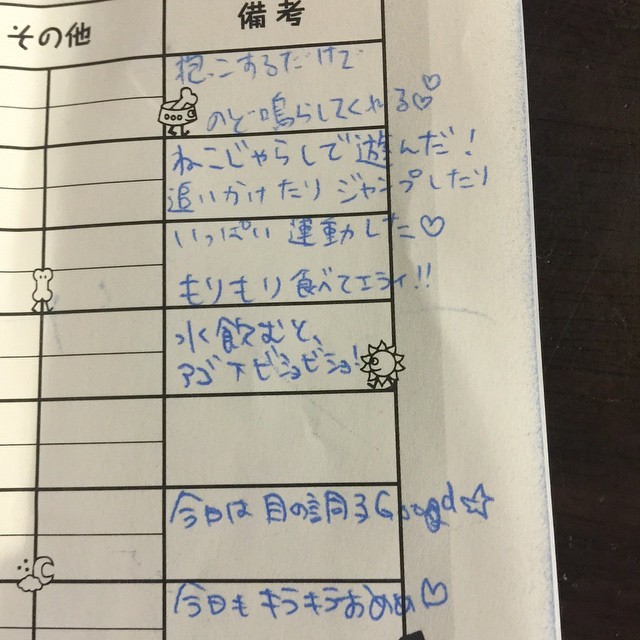 その他
備考
抱っこするだけで
のど鳴らしてくれる♡
ねこじゃらしで遊んだ！
追いかけたりジャンプしたり
いっぱい運動した♡
もりもり食べてエライ!!
水飲むと、
アゴ下ビショビショ!
今日は目の調子Good☆
今日もキラキラおめめ♡